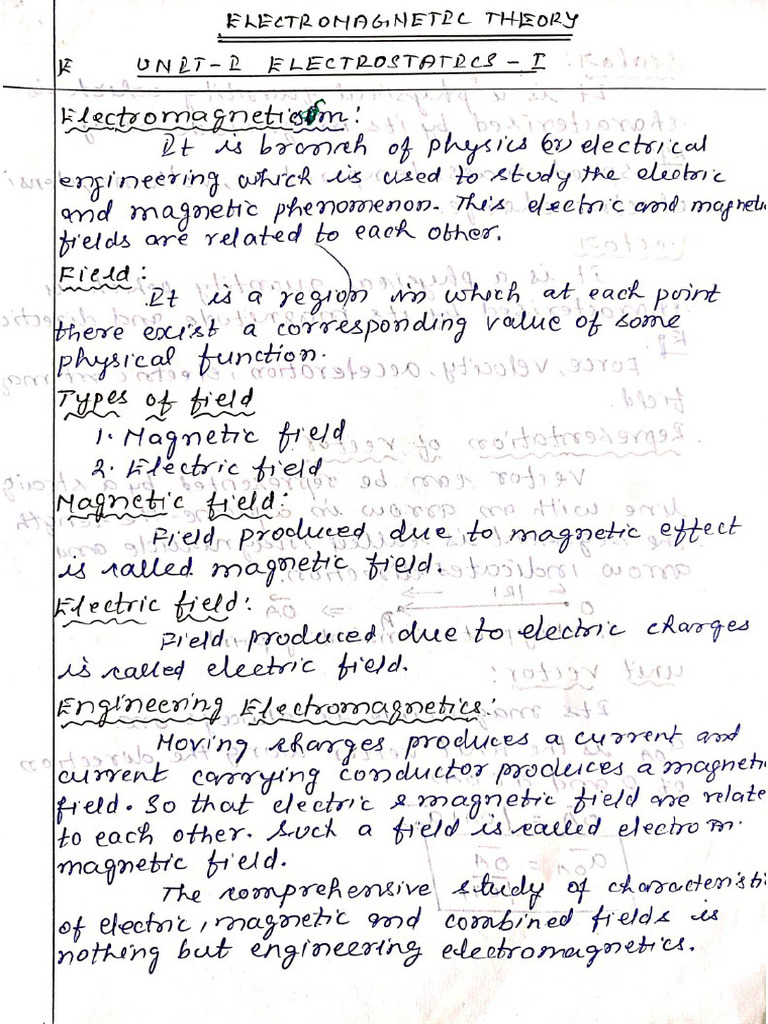 ELECTROMAGNETIC THEORY
E UNIT-I ELECTROSTATICS - I
Electromagneticsm:
It is branch of physics (or) electrical
engineering which is used to study the electric
and magnetic phenomenon. This electric and magnetic
fields are related to each other.
Field:
It is a region in which at each point
there exist a corresponding value of some
physical function.
Types of field
1. Magnetic field
2. Electric field
Magnetic field:
Field produced due to magnetic effect
is called magnetic field.
Electric field:
Field produced due to electric charges
is called electric field.
Engineering Electromagnetics:
Moving charges produces a current and
current carrying conductor produces a magneti
field. So that electric & magnetic field are relate
to each other. Such a field is called electrom
magnetic field.
The comprehensive study of characteristi
of electric, magnetic and combined fields is
nothing but engineering electromagnetics.